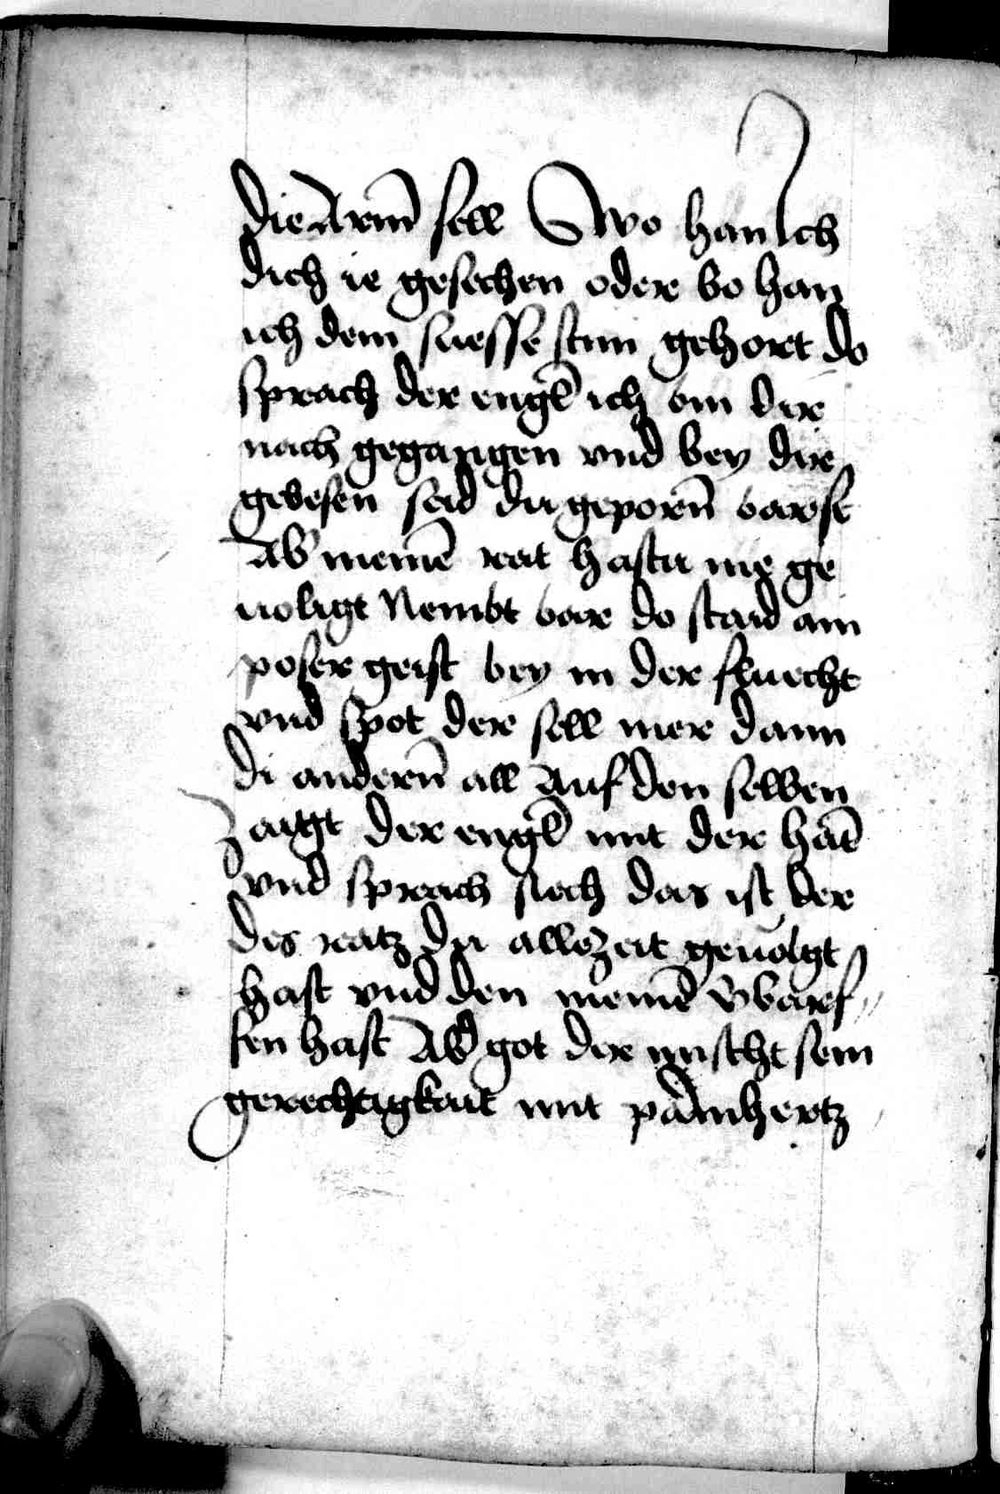 die Arm̄ sell Swo han Ich
dich ie gesechen oder bo han
ich dem suesse stim gehort do
sprach der engl̄ ich bin dir
nach gegangen vnd bey dir
gebesen seid du geporn̄ barst
Ab' meinē rat hastu nie ge
uoligt Nembt bar do staid ain
poser geist bey in der fluecht
vnd spot der sell mer dann
di andern̄ all Auf den selben
zaigt der engl̄ mit der hāt
vnd sprach siech das ist der
des ratz du allezeit geuolgt
hast vnd den meinē v'barf
fen hast Ab' got der mischt sein
gerechtigkait mit parmhertz